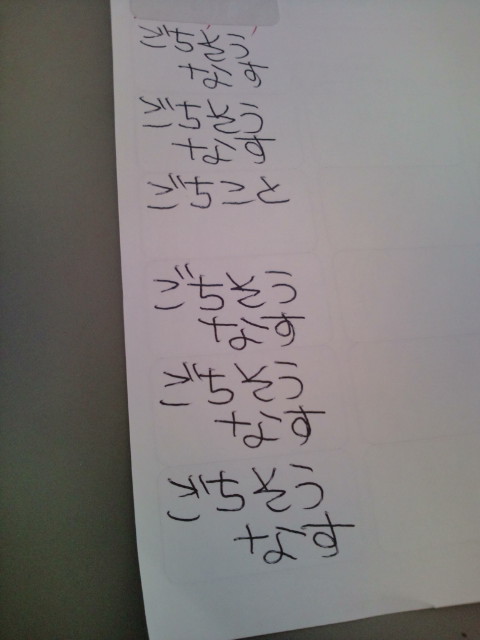 ごちそう
なす
ごちそう
なす
ごちこと
ごちそう
なす
ごちそう
なす
ごちそう
なす